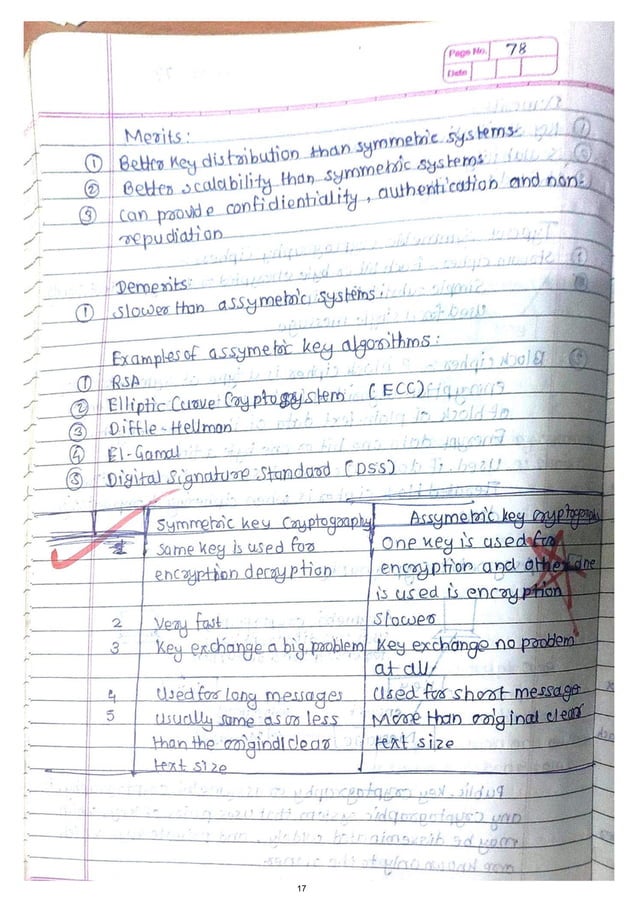 Page No. 78
Date
Merits:
① Better key distribution than symmetric systems.
② Better scalability than symmetric systems
③ can provide confidientiality, authentication and non-
repudiation
Demerits:
① slower than assymetric systems.
Examples of assymetric key algorithms:
① RSA
② Elliptic Curve Cryptosystem (ECC)
③ Diffle-Hellman
④ El-Gamal
⑤ Digital Signature Standard (DSS)
Symmetric key Cryptography Assymetric key cryptography
1 same key is used for One key is used for
encrypthon decryption encryption and other one
is used is encryption
2 Very fast Slower
3 Key exchange a big problem Key exchange no problem
at all
4 Used for long messages Used for short message
5 usually same as or less More than original clear
than the original clear text size
text size
17